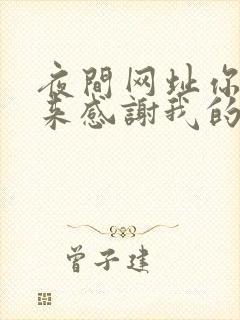 夜間网址你
来感謝我的
曾子建